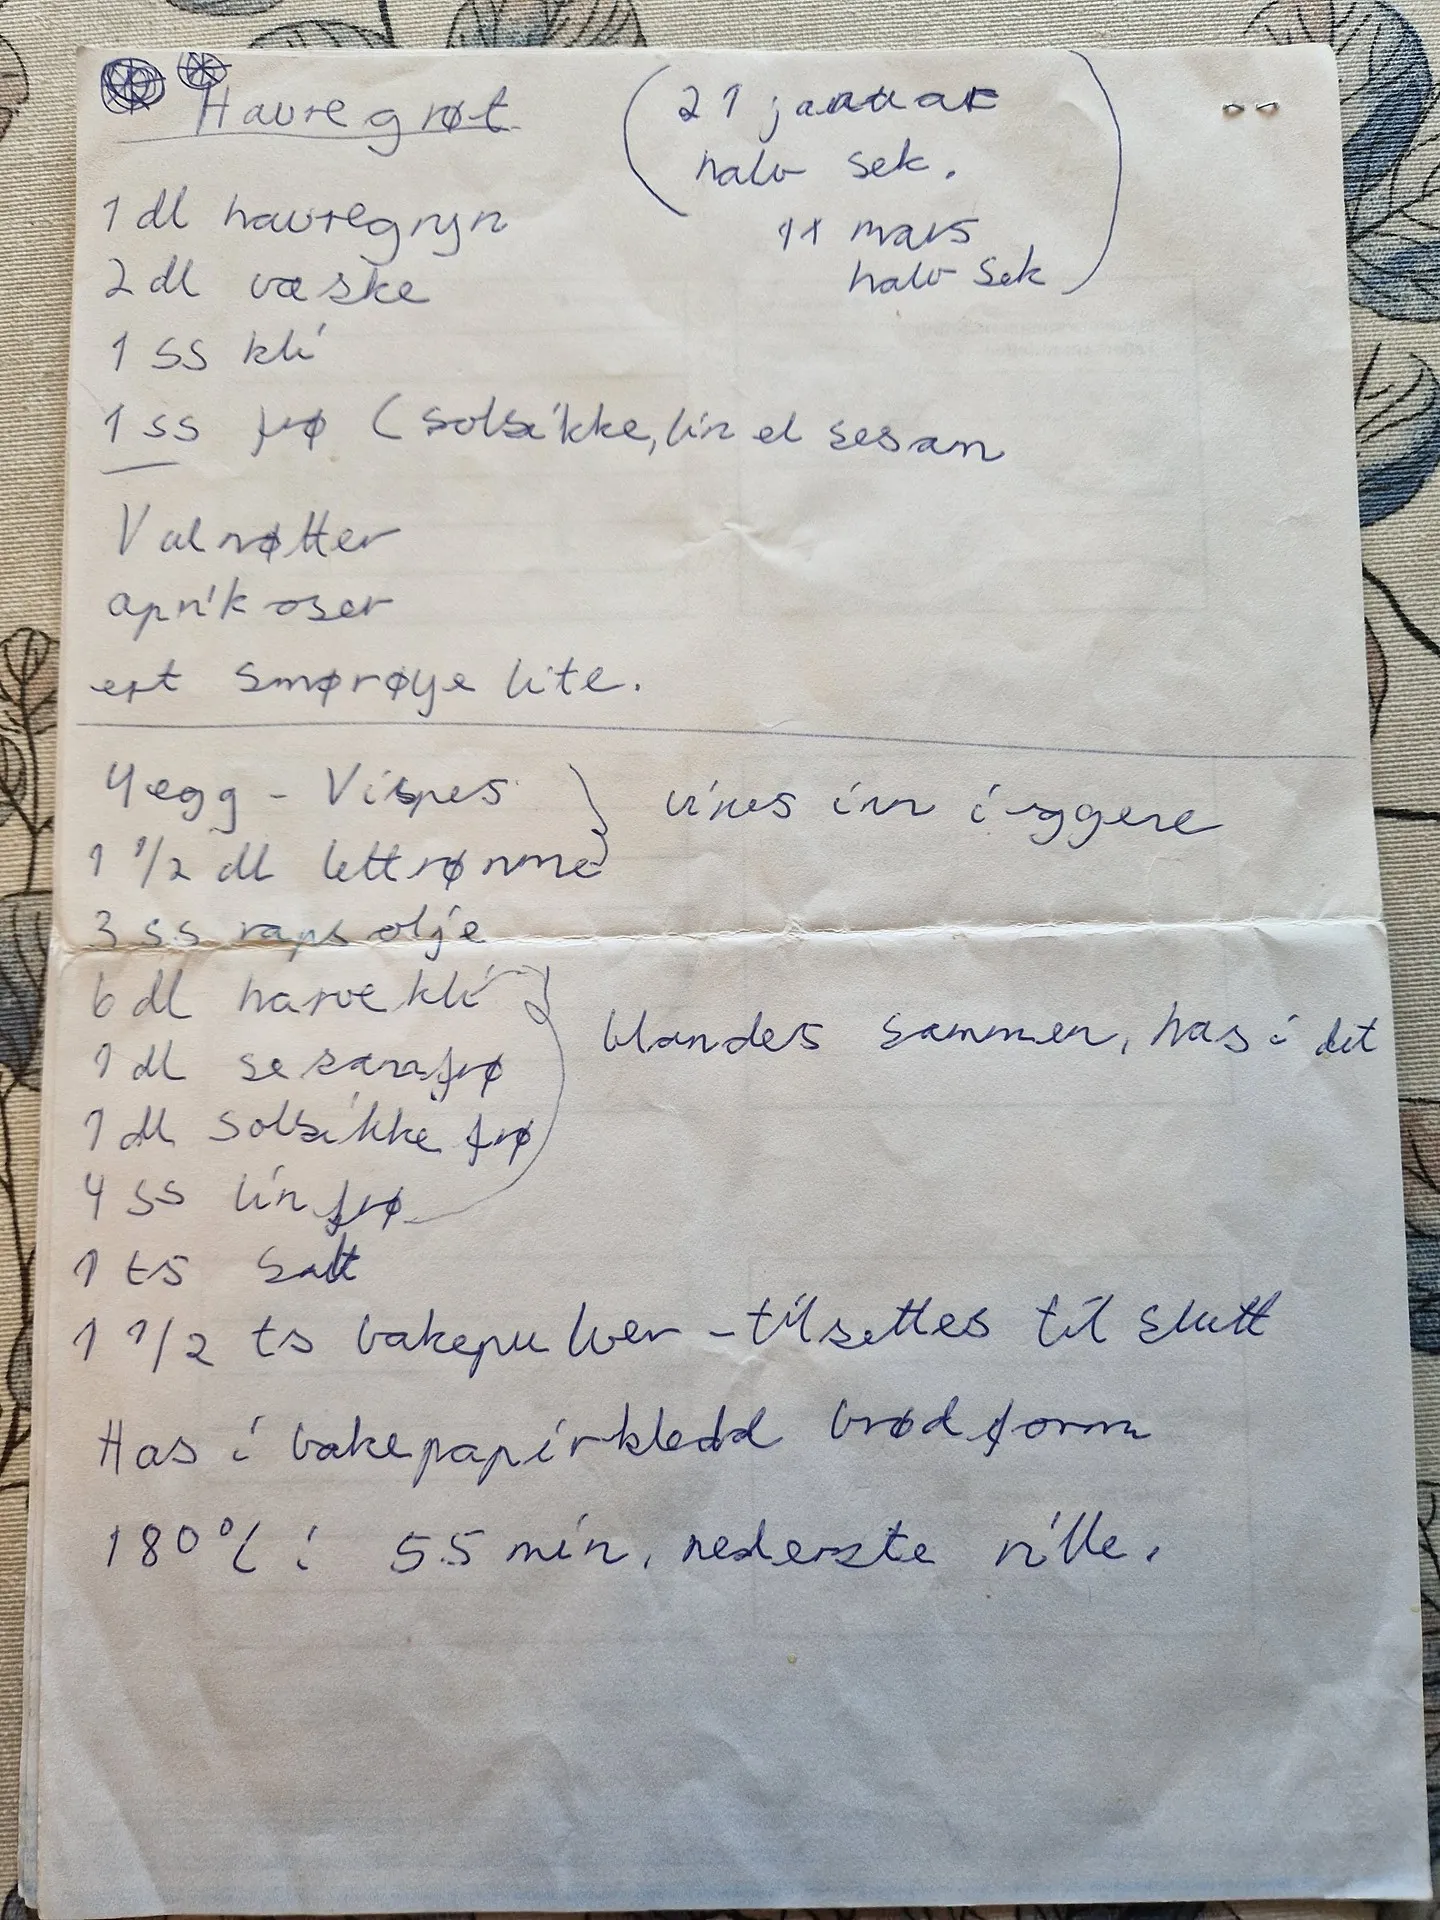 Havregrøt
(21 januar
halv sek.
11 mars
halv sek)
1 dl havregryn
2 dl væske
1 ss kli
1 ss frø (solsikke, lin el sesam
Valnøtter
aprikoser
ert smørøye lite.
4 egg - Vispes
1 1/2 dl lettrømme } vines inn i eggene
3 ss rapsolje
6 dl havrekli
1 dl sesamfrø } blandes sammen, has i det
1 dl solsikke frø
4 ss lin frø
1 ts salt
1 1/2 ts bakepulver - tilsettes til slutt
Has i bakepapirkledd brødform
180°C i 55 min, nederste rille.